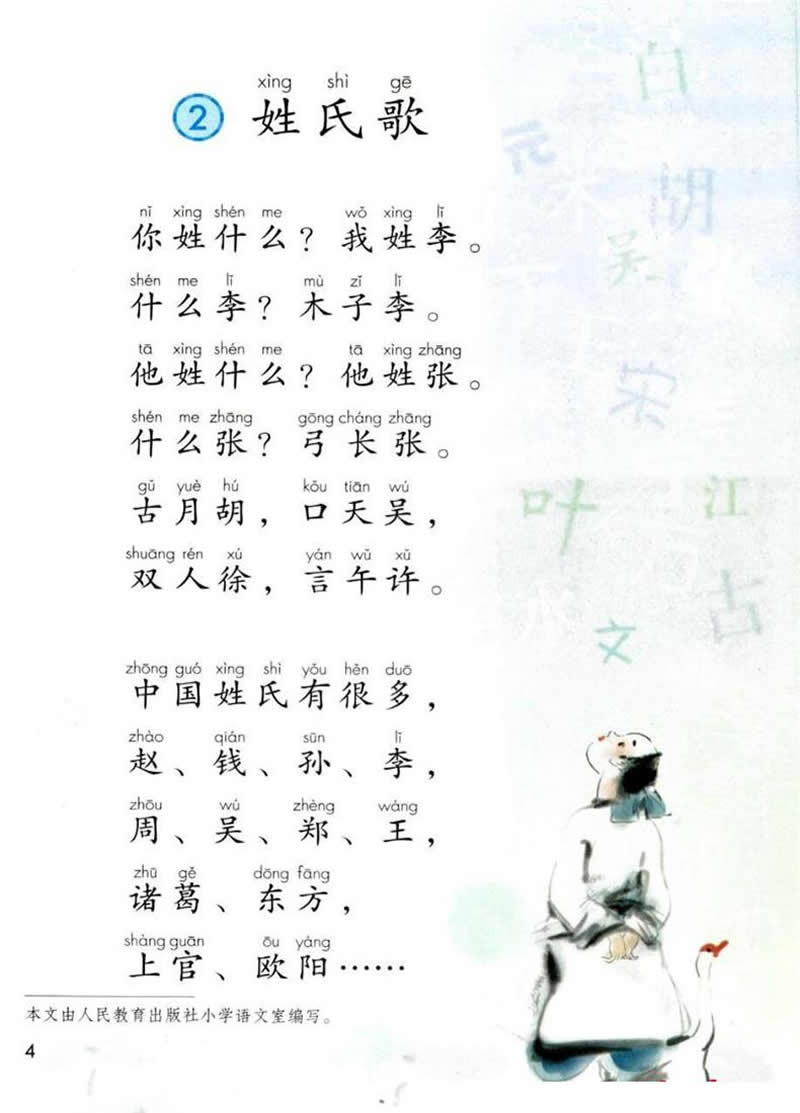 xìng shì gē
2 姓氏歌
nǐ xìng shén me wǒ xìng lǐ
你姓什么？我姓李。
shén me lǐ mù zǐ lǐ
什么李？木子李。
tā xìng shén me tā xìng zhāng
他姓什么？他姓张。
shén me zhāng gōng cháng zhāng
什么张？弓长张。
gǔ yuè hú kǒu tiān wú
古月胡，口天吴，
shuāng rén xú yán wǔ xǔ
双人徐，言午许。
zhōng guó xìng shì yǒu hěn duō
中国姓氏有很多，
zhào qián sūn lǐ
赵、钱、孙、李，
zhōu wú zhèng wáng
周、吴、郑、王，
zhū gě dōng fāng
诸葛、东方，
shàng guān ōu yáng
上官、欧阳……
本文由人民教育出版社小学语文室编写。
4
白
元
胡
吴
宋
叶 江
古
文